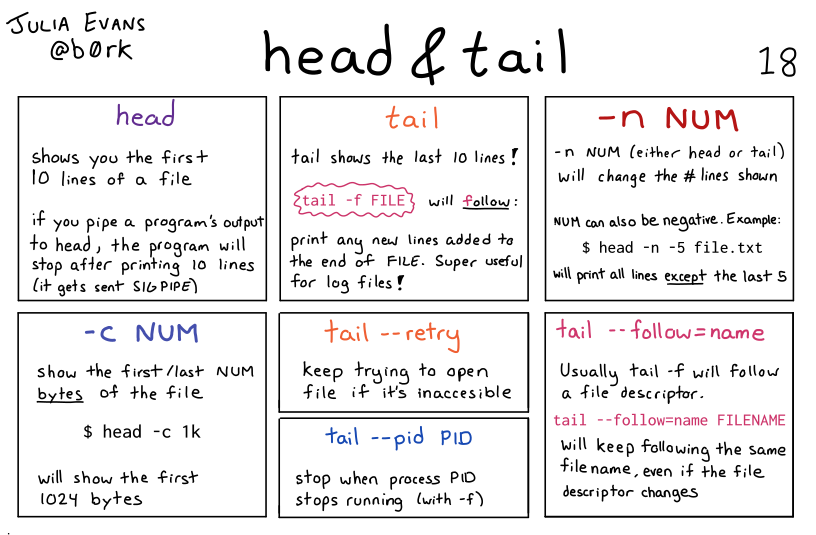 JULIA EVANS
@b0rk
head & tail
18
head
shows you the first
10 lines of a file
if you pipe a program's output
to head, the program will
stop after printing 10 lines
(it gets sent SIGPIPE)
tail
tail shows the last 10 lines!
tail -f FILE will follow:
print any new lines added to
the end of FILE. Super useful
for log files!
-n NUM
-n NUM (either head or tail)
will change the # lines shown
NUM can also be negative. Example:
$ head -n -5 file.txt
will print all lines except the last 5
-c NUM
show the first/last NUM
bytes of the file
$ head -c 1k
will show the first
1024 bytes
tail --retry
keep trying to open
file if it's inaccesible
tail --pid PID
stop when process PID
stops running (with -f)
tail --follow=name
Usually tail -f will follow
a file descriptor.
tail --follow=name FILENAME
will keep following the same
filename, even if the file
descriptor changes